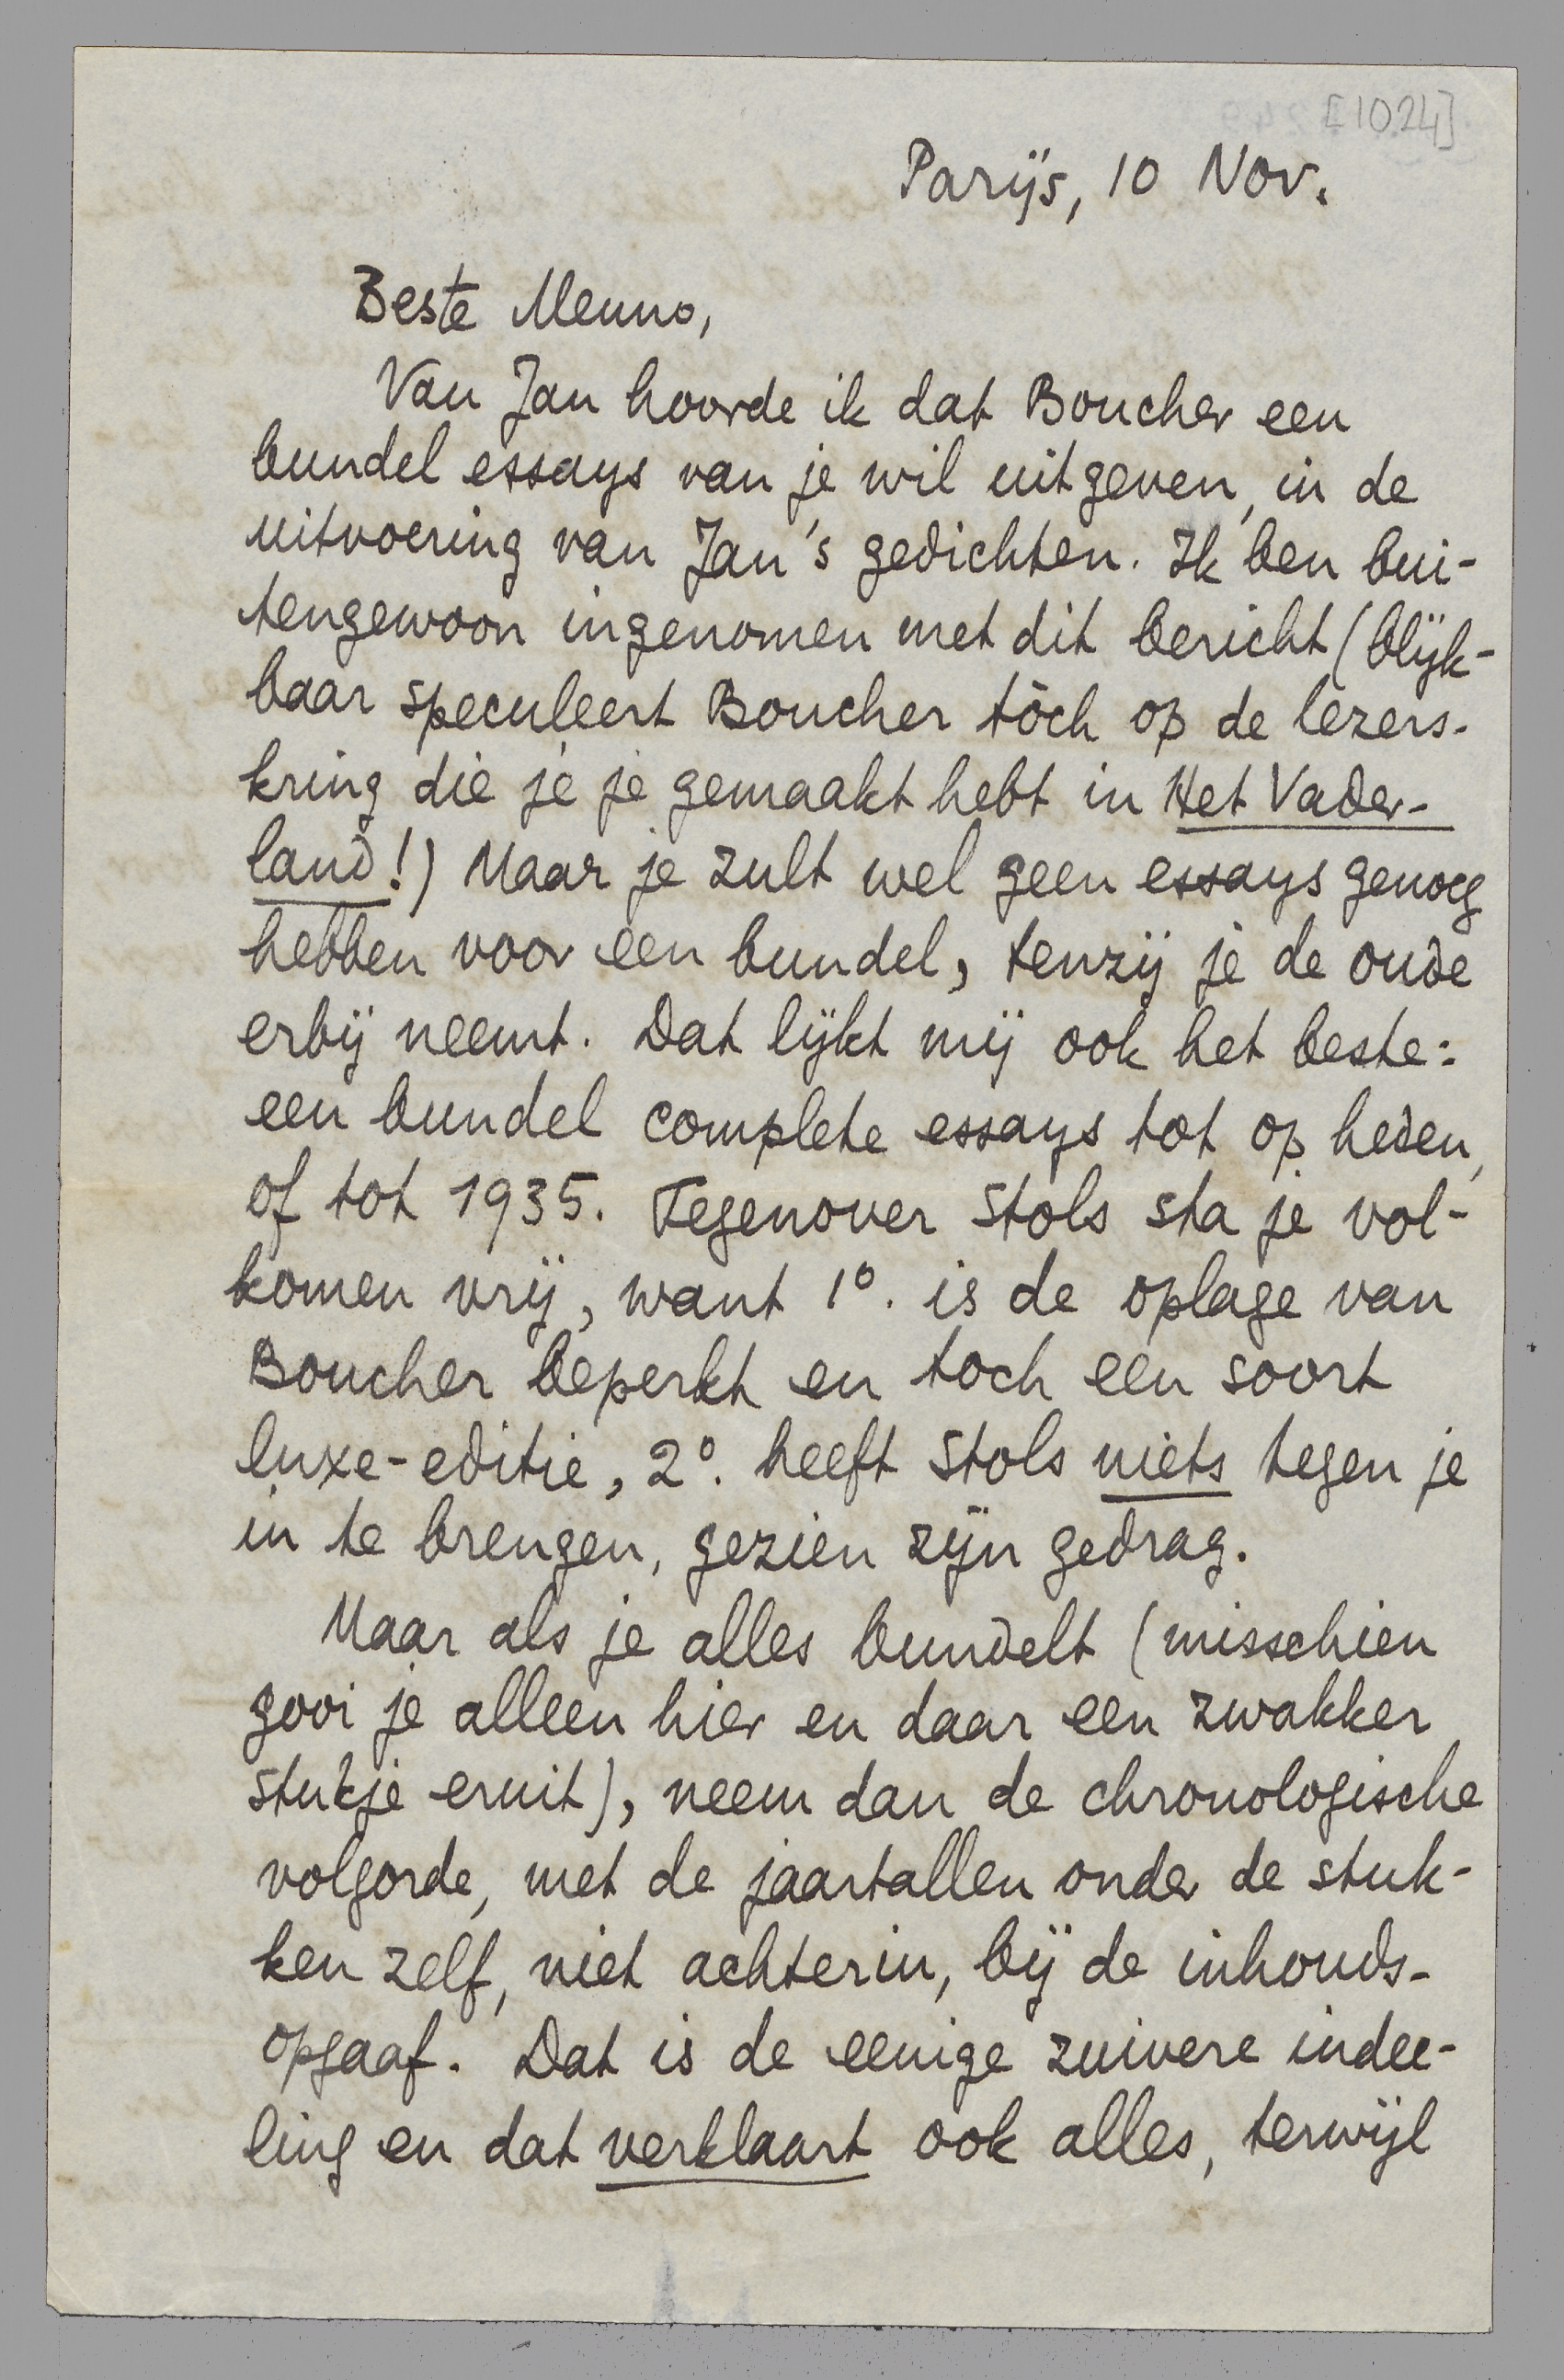 [1024]
Parijs, 10 Nov.
Beste Menno,
Van Jan hoorde ik dat Boucher een
bundel essays van je wil uitgeven, in de
uitvoering van Jan's gedichten. Ik ben bui-
tengewoon ingenomen met dit bericht (blijk-
baar speculeert Boucher tòch op de lezers-
kring die je je gemaakt hebt in Het Vader-
land!) Maar je zult wel geen essays genoeg
hebben voor een bundel, tenzij je de oude
erbij neemt. Dat lijkt mij ook het beste:
een bundel complete essays tot op heden,
of tot 1935. Tegenover Stols sta je vol-
komen vrij, want 1º. is de oplage van
Boucher beperkt en toch een soort
luxe-editie, 2º. heeft Stols niets tegen je
in te brengen, gezien zijn gedrag.
Maar als je alles bundelt (misschien
gooi je alleen hier en daar een zwakker
stukje eruit), neem dan de chronologische
volgorde, met de jaartallen onder de stuk-
ken zelf, niet achterin, bij de inhouds-
opgaaf. Dat is de eenige zuivere indee-
ling en dat verklaart ook alles, terwijl